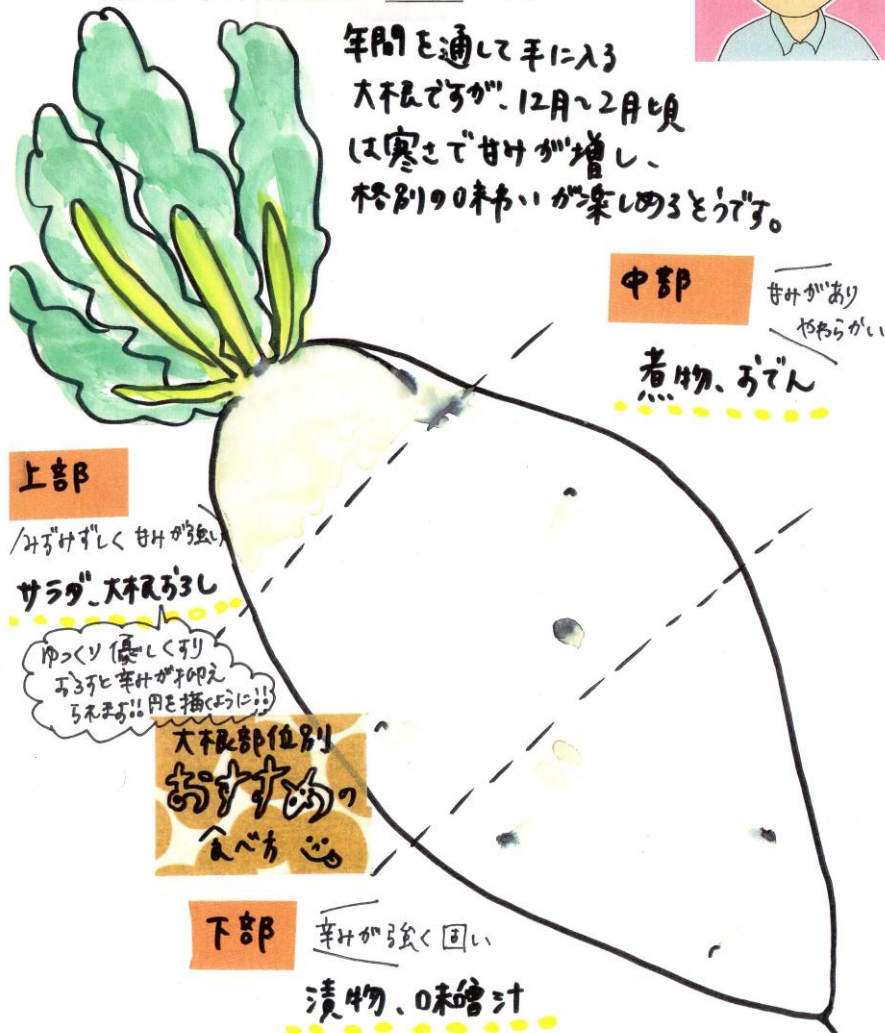 年間を通して手に入る
大根ですが、12月~2月頃
は寒さで甘みが増し、
格別の味わいが楽しめるそうです。
中部
甘みがあり
やわらかい
煮物、おでん
上部
みずみずしく 甘みが強い
サラダ、大根おろし
ゆっくり優しくすり
おろすと辛みが抑え
られます!!円を描くように!!
大根部位別
おすすめの
食べ方
下部
辛みが強く固い
漬物、味噌汁